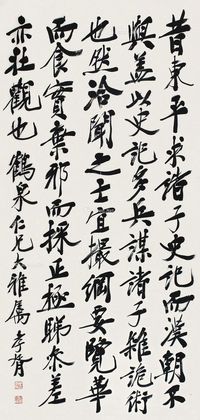 昔東平求諸子史記而漢朝不
與蓋以史記多兵謀諸子雜詭術
也然洽聞之士宜撮綱要覽華
而食實棄邪而採正極睇參差
亦壯觀也 鶴泉仁兄大雅屬 孝胥